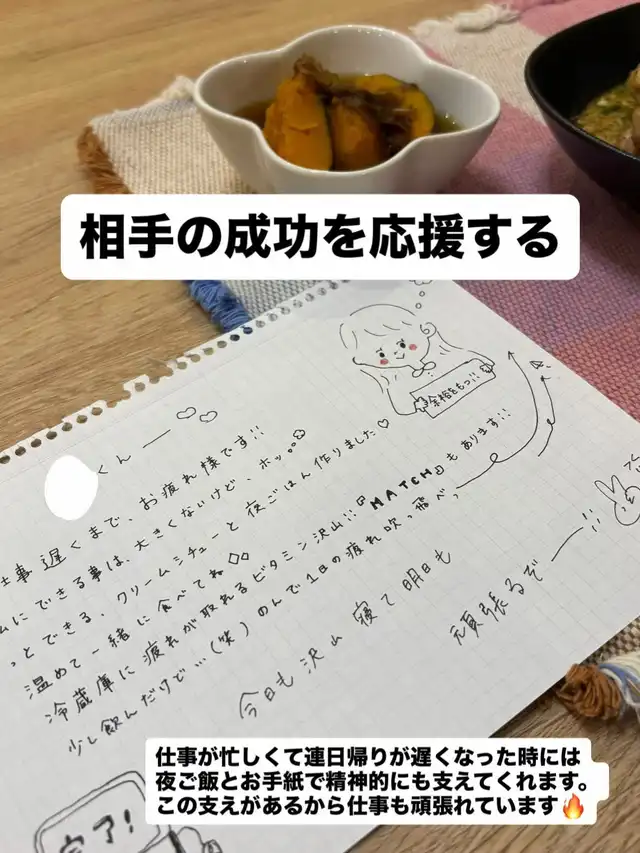 相手の成功を応援する
余裕をもつ!!
くん ―
仕事 遅くまで、お疲れ様です!!
にできる事は、大きくないけど、ホッ
っとできる、クリームシチューと夜ごはん作りました♡
温めて一緒に食べてね◇◇
冷蔵庫に疲れが取れるビタミン沢山!!『MATCH』もあります!!
少し飲んだけど…(笑)のんで1日の疲れ吹っ飛べっ
今日も沢山寝て明日も
頑張るぞー!!
完了!
仕事が忙しくて連日帰りが遅くなった時には
夜ご飯とお手紙で精神的にも支えてくれます。
この支えがあるから仕事も頑張れています🔥